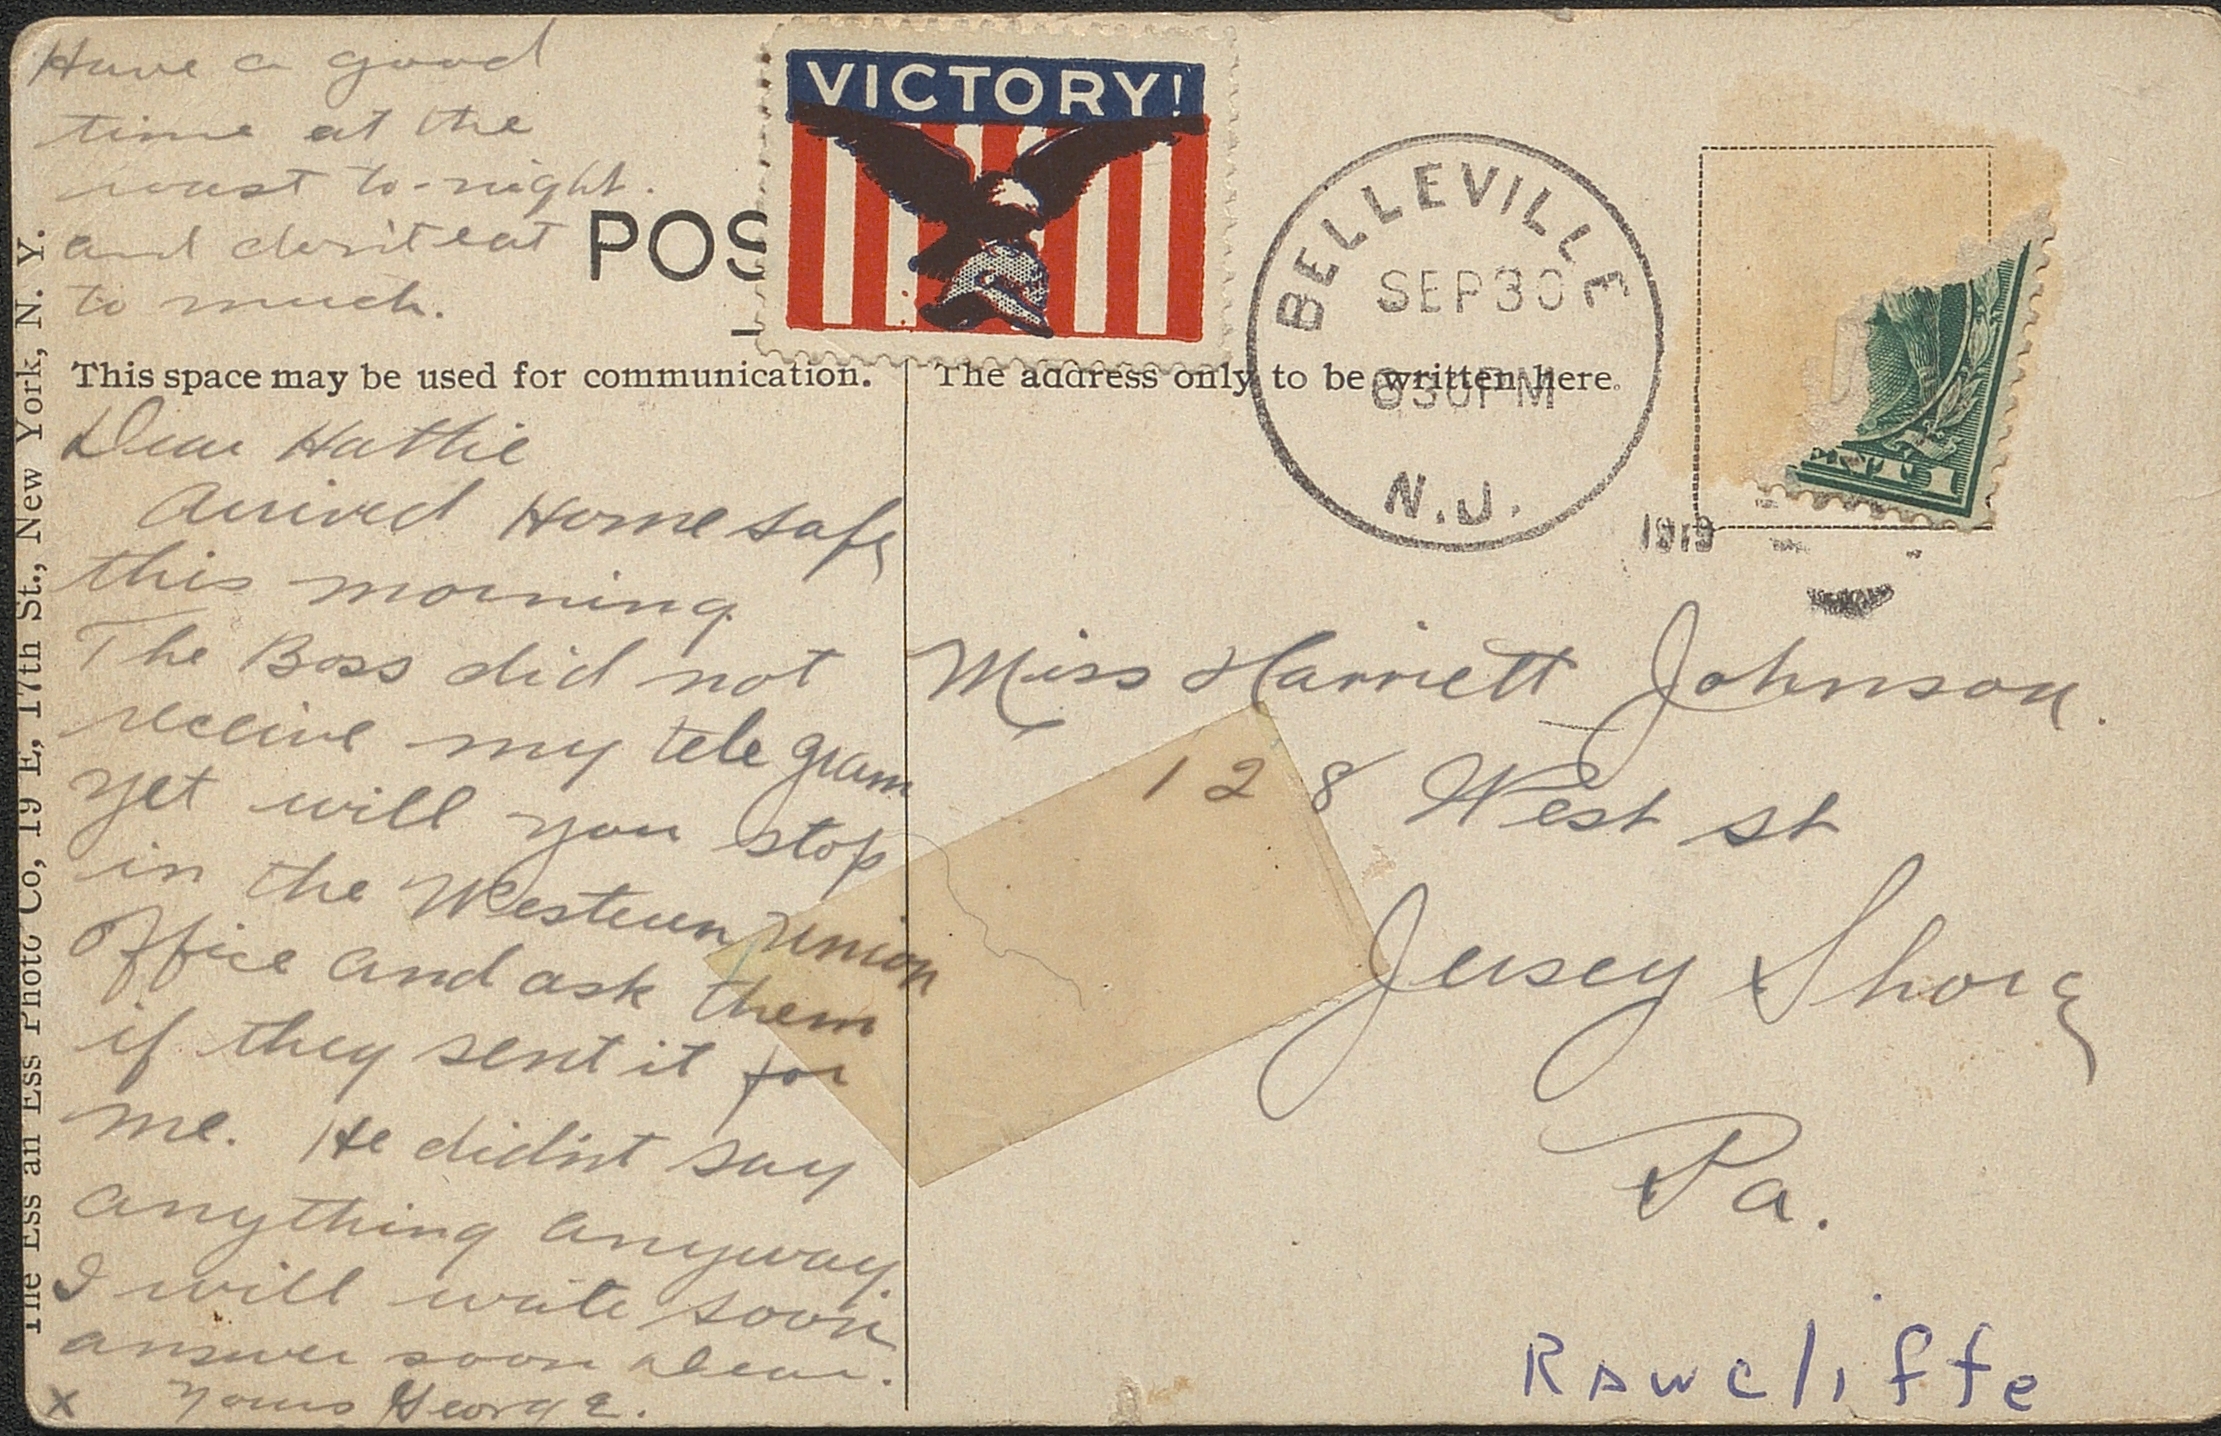 Have a good
time at the
roast to-night.
and don't eat
to much.
POS
VICTORY!
BELLEVILLE
SEP 30
630PM
N.J.
1919
This space may be used for communication.
The address only to be written here.
Dear Hattie
Arrived Home safe
this morning.
The Boss did not
receive my tele gram
yet will you stop
in the Western Union
Office and ask them
if they sent it for
me. He didn't say
anything anyway.
I will write soon
answer soon Dear.
x Yours George.
Miss Harriett Johnson.
128 West st
Jersey Shore
Pa.
Rawcliffe
The Ess an Ess Photo Co, 19 E, 17th St., New York, N. Y.